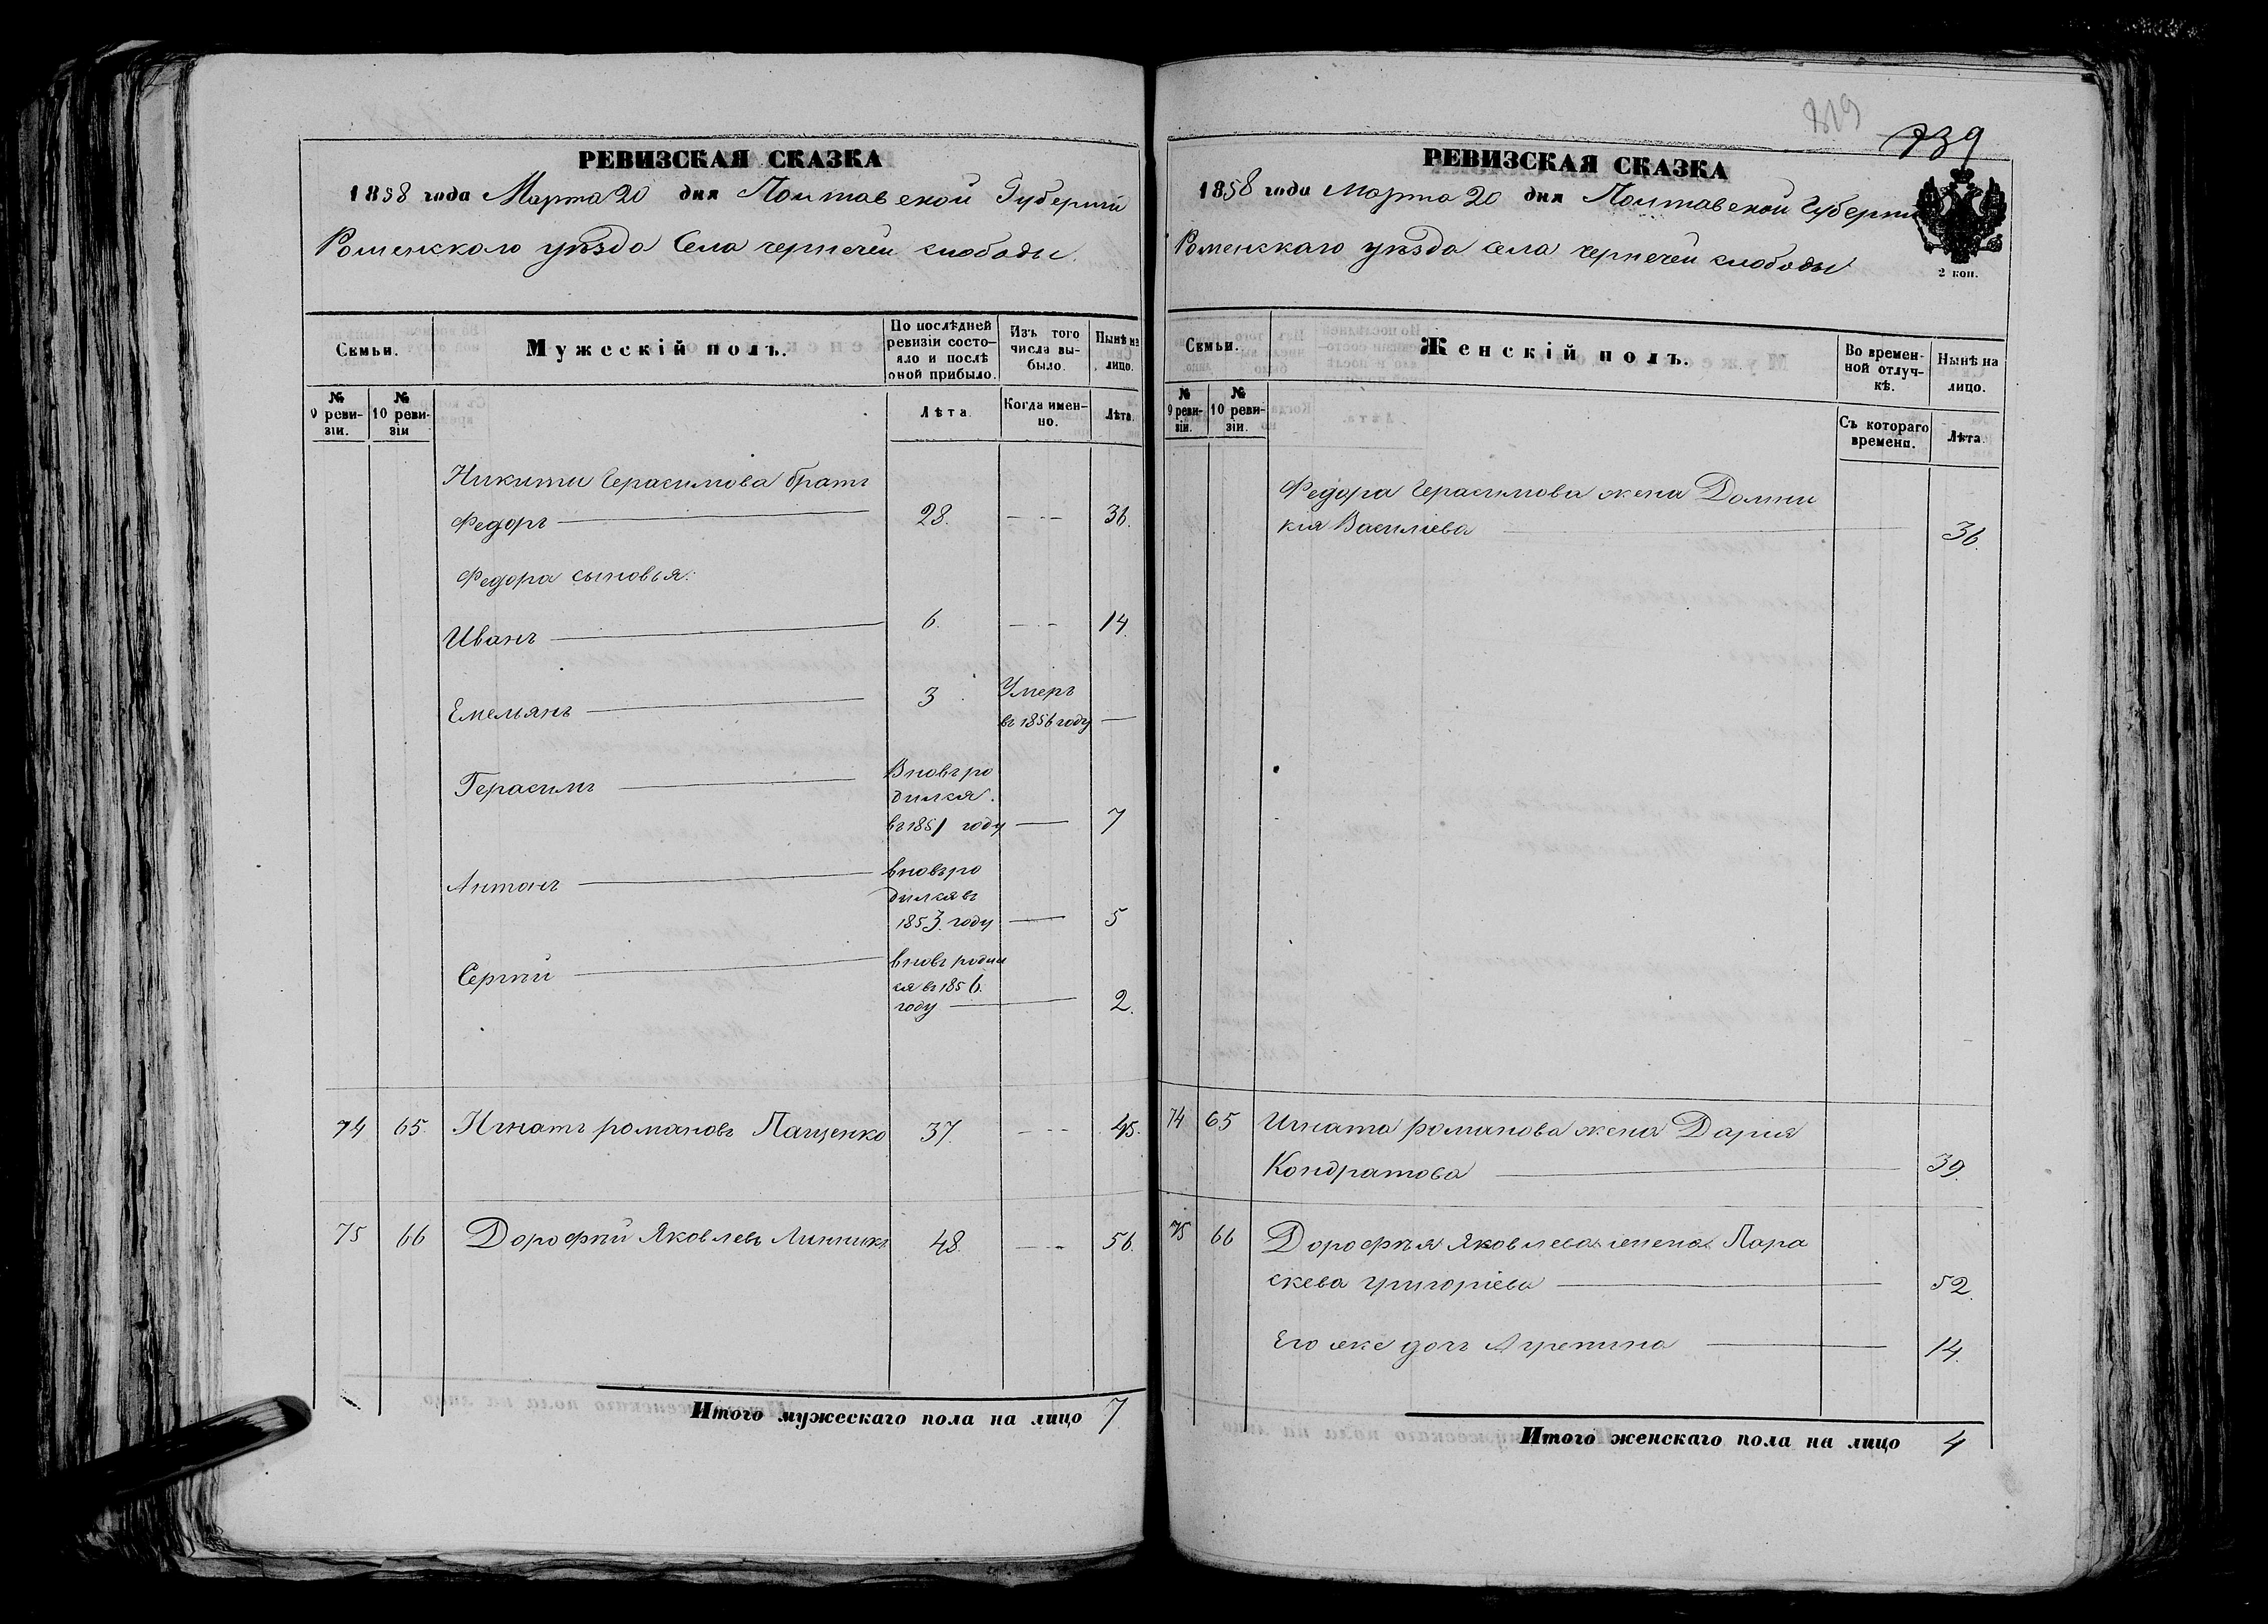 РЕВИЗСКАЯ СКАЗКА
1858 года Марта 20 дня Полтавской Губерніи
Роменского уѣзда Села чернечей слободы.
Семьи.
Мужескій полъ.
По послѣдней ревизіи состо-
яло и послѣ
оной прибыло.
Изъ того
числа вы-
было.
Нынѣ на
лицо.
№
9 реви-
зіи.
№
10 реви-
зіи
Лѣта
Когда имен-
но.
Лѣта.
Никиты Герасимова братъ
Федоръ 28. 36.
Федора сыновья:
Иванъ 6. 14.
Емельянъ 3 Умеръ
въ 1856 году
Герасимъ Вновь ро
дился
въ 1851 году 7
Антонъ вновь ро
дился въ
1853 году 5
Сергѣй вновь родил
ся въ 1856.
году 2.
74 65. Игнатъ романовъ Пащенко 37. 45.
75 66 Дорофѣй Яковлевъ Линникъ 48. 56.
Итого мужескаго пола на лицо 7
819
739
РЕВИЗСКАЯ СКАЗКА
1858 года Марта 20 дня Полтавской Губерніи
Роменскаго уѣзда села чернечей слободы
2 коп.
Семьи.
Женскій полъ.
Во времен-
ной отлуч-
кѣ.
Нынѣ на
лицо.
№
9 реви-
зіи.
№
10 реви-
зіи.
Съ котораго
времени.
Лѣта.
Федора Герасимова жена Домни
кія Василіева 36.
74 65 Игната романова жена Дарія
Кондратова 39.
75 66 Дорофѣя Яковлева жена Пара
скева григоріева 52.
Его же дочь Агрепина 14.
Итого женскаго пола на лицо 4